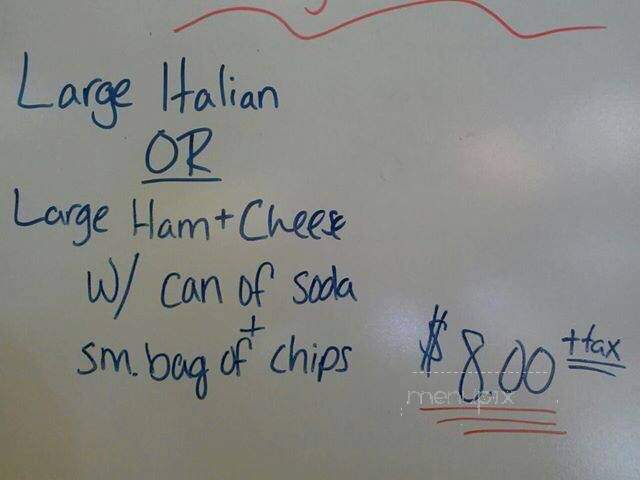 Large Italian
OR
Large Ham + Cheese
w/ can of soda
+
sm. bag of chips
$8.00 + tax
menupix